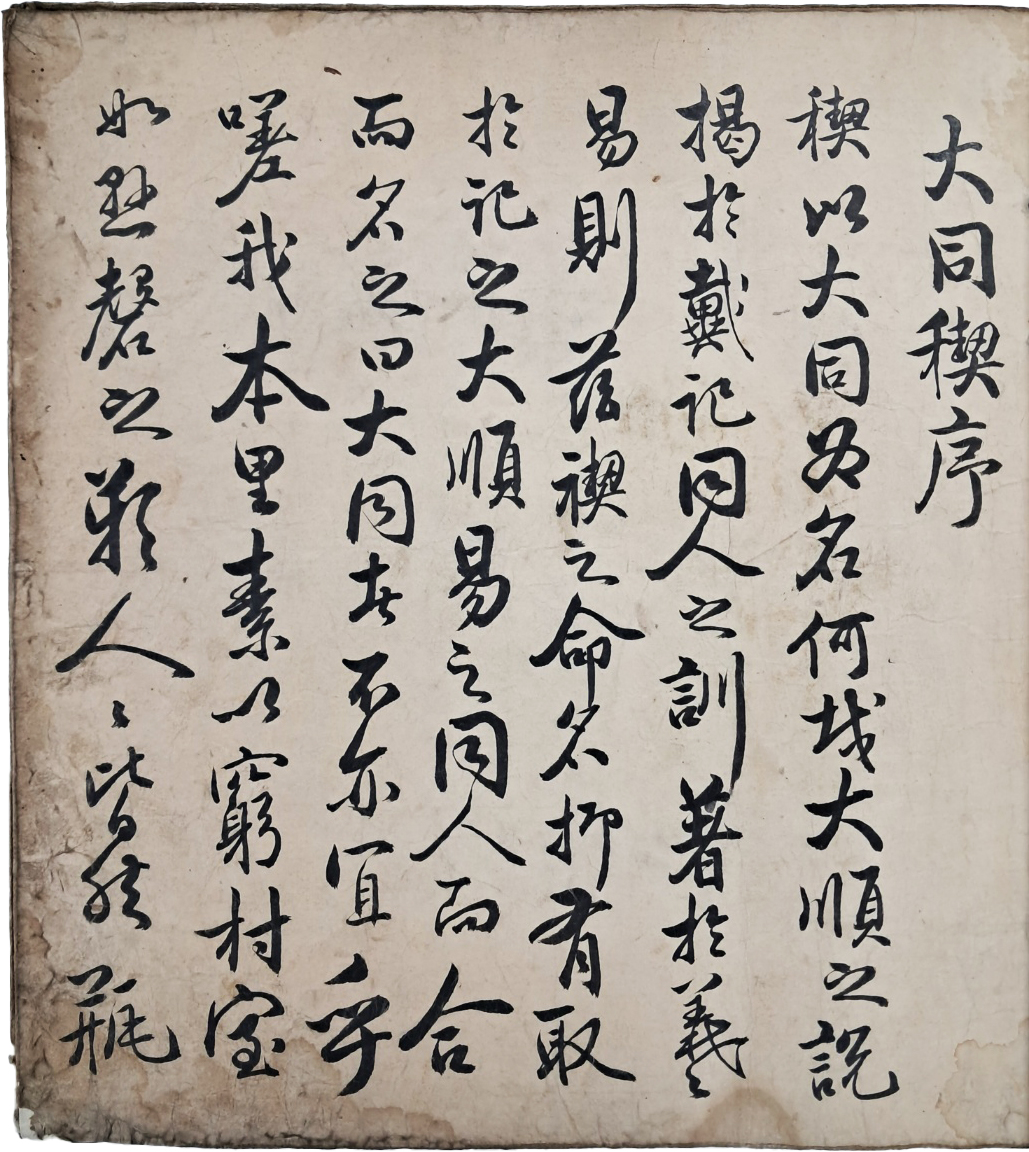 大同稧序
稧以大同爲名何哉大順之説
揭於戴記同人之訓著於羲
易則茲禊之命名抑有取
於記之大順易之同人而合
而名之曰大同者不亦宜乎
嗟我本里素以窮村室
如懸磬之艱人々皆然瓶